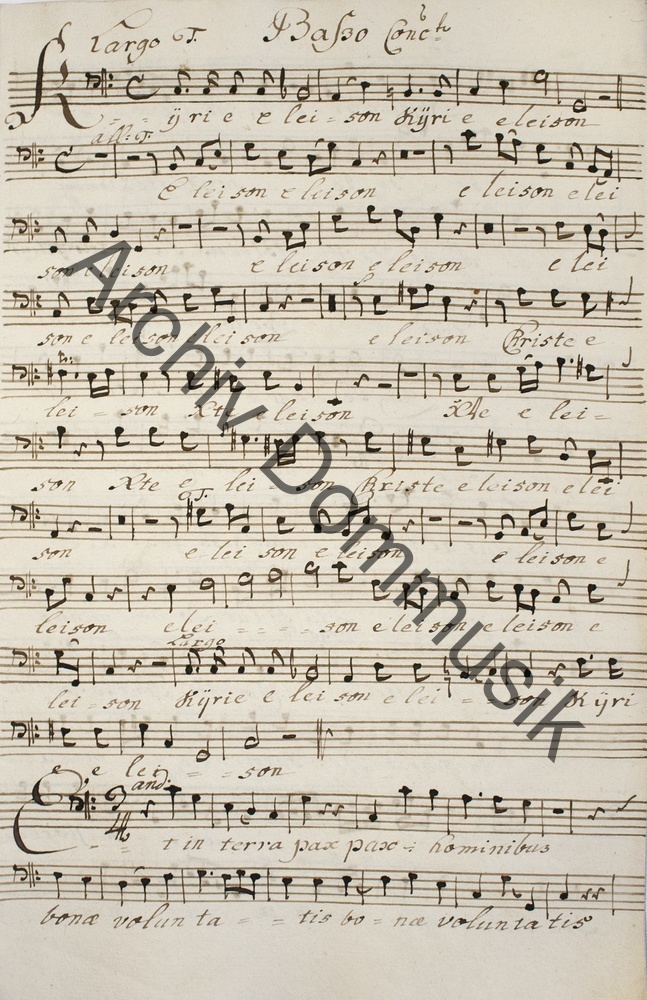 Largo T. Basso Conc:to
Kÿrie elei - son Kÿrie eleison
all: T.
Eleison eleison eleison elei
son eleison eleison eleison elei
son e leison eleison eleison Christe e
lei - son Xte eleison Xte e lei -
son Xte e lei - son Christe eleison elei
T.
son e lei son eleison eleison e
leison elei - - - - son eleison eleison e
Largo
lei - son Kÿrie e lei son e lei - - son Kÿri
e e lei - - son
and:
Et in terra pax pax - hominibus
bonæ volunta - - tis bo - næ voluntatis
Archiv Dommusik